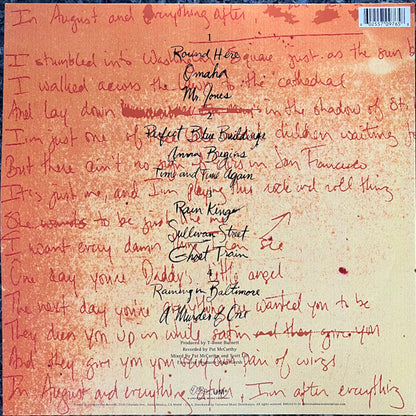 In August and everything after
6 02557 09765 6
1
I stumbled into Washington square just as the sun
Round Here
Omaha
I walked across the to the cathedral
Mr. Jones
And lay down in the shadow of St
2
I'm just one of children waiting
Perfect Blue Buildings
But there ain't no in San Francisco
Anna Begins
Time and Time Again
It's just me, and I'm playing this rock and roll thing
3
Rain King
She wants to be just
Sullivan Street
I want every damn thing I can see
Ghost Train
One day you're Daddy's little angel
4
Raining in Baltimore
The next day you're wanted you to be
A Murder of One
They dress you up in white satin and they give you
Produced by T-Bone Burnett
Recorded by Pat McCarthy
Mixed by Pat McCarthy and Scott Litt
And they give you your own pair of wings
In August and everything after, I'm after everything